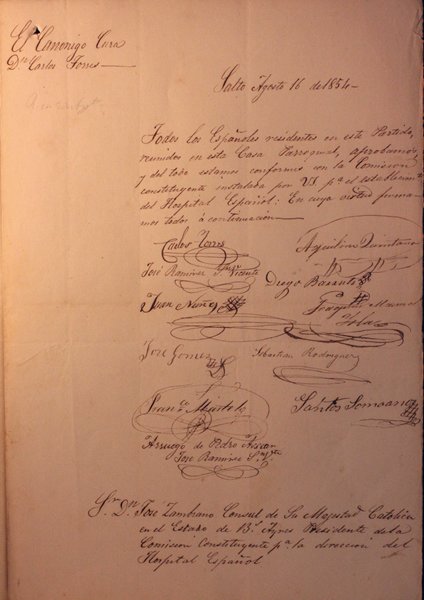 El Canonigo Cura
Dn Carlos Torres
Salto Agosto 16 de 1854
Todos los Españoles residentes en este Partido,
reunidos en esta Casa Parroquial, aprobamos
y del todo estamos conformes con la Comision
constituyente instalada por VS pa el establecimto
del Hospital Español: En cuya virtud firma-
mos todos á continuacion
Carlos Torres
Aquilino Quintana
José Ramirez Sn Vicente
Diego Barrante
Juan Nuñez
Manuel
José Gomez
Sebastian Rodriguez
Santos Somoano
Arruego de Pedro
José Ramirez Sn
Sr Dn José Zambrano Consul de Su Magestad Católica
en el Estado de Bs Ayres Presidente de la
Comision Constituyente pa la direccion del
Hospital Español